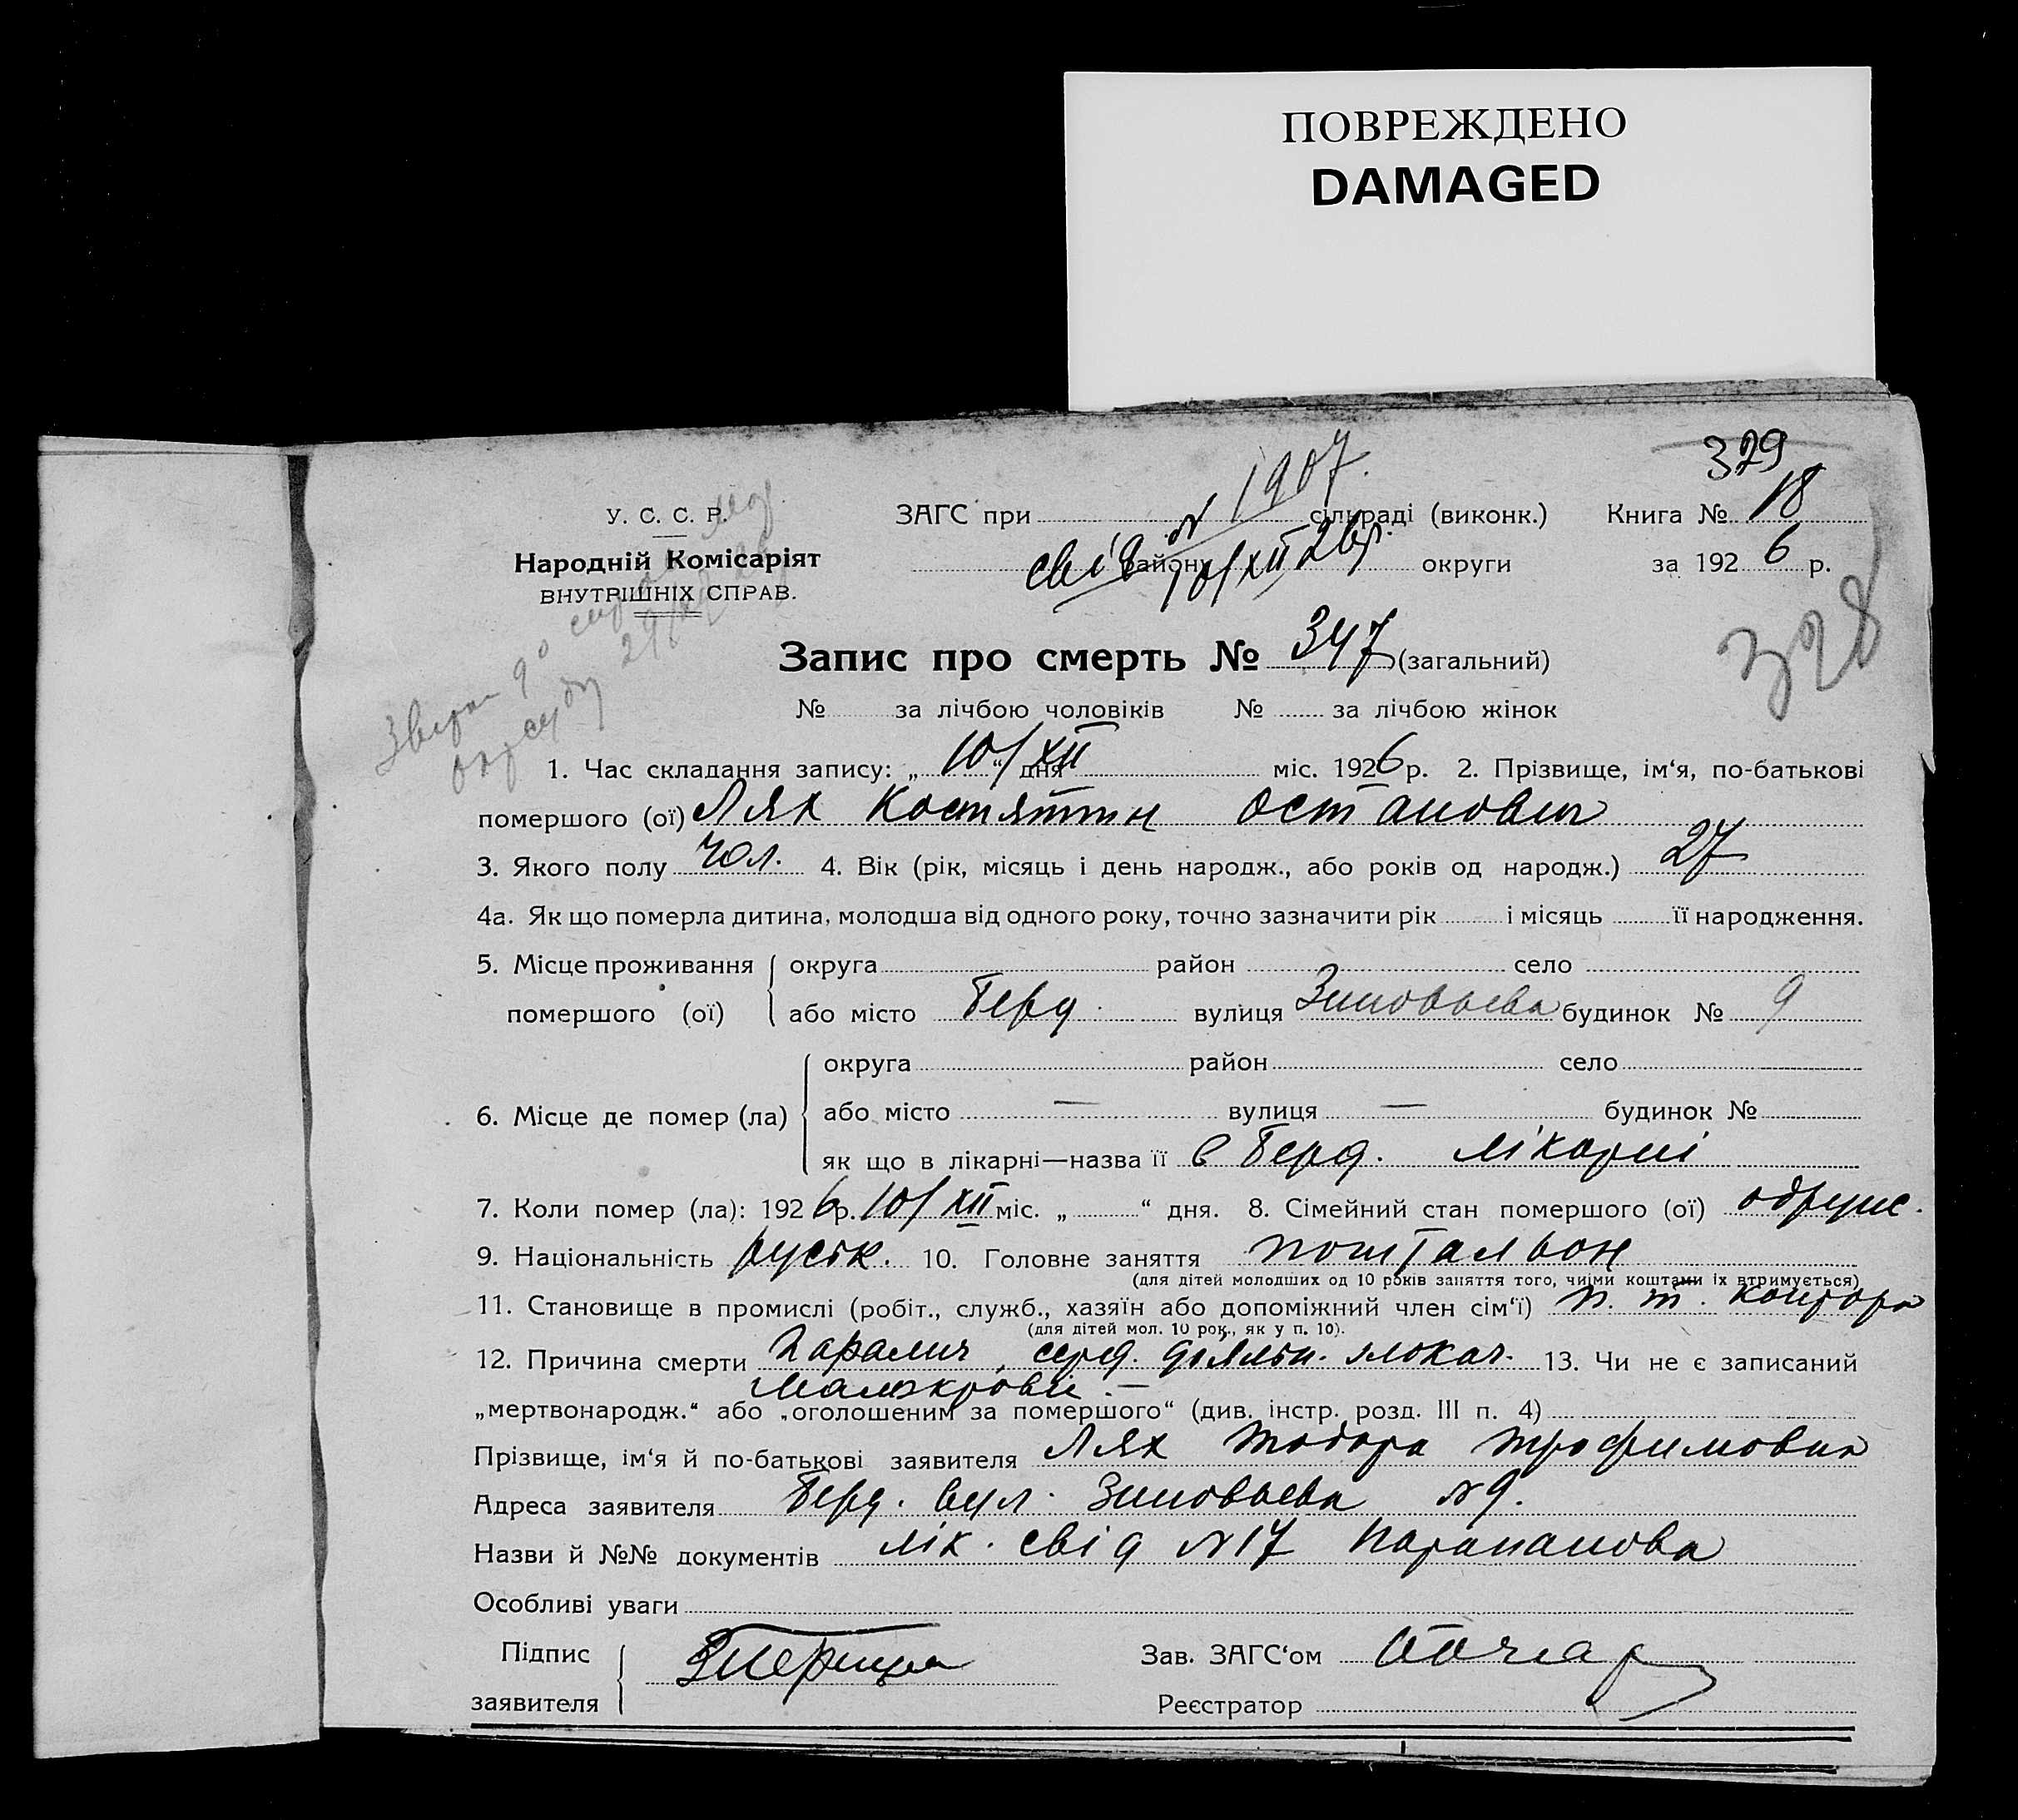 ПОВРЕЖДЕНО
DAMAGED
329
У. С. С. Р.
Народній Комісаріят
ВНУТРІШНІХ СПРАВ.
ЗАГС при сільраді (виконк.) Книга № 18
№ 1907.
району округи за 1926 р.
свід 10/XII 26р.
328
Запис про смерть № 347 (загальний)
№ за лічбою чоловіків № за лічбою жінок
1. Час складання запису: „10/XII“ дня міс. 1926 р. 2. Прізвище, ім‘я, по-батькові
помершого (ої) Лях Костянтин Остапович
3. Якого полу чол. 4. Вік (рік, місяць і день народж., або років од народж.) 27
4а. Як що померла дитина, молодша від одного року, точно зазначити рік і місяць її народження.
5. Місце проживання округа район село
помершого (ої) або місто Берд. вулиця Зиновьева будинок № 9
округа район село
6. Місце де помер (ла) або місто — вулиця — будинок №
як що в лікарні—назва її в Берд. лікарні
7. Коли помер (ла): 1926 р. 10/XII міс. „ “ дня. 8. Сімейний стан помершого (ої) одруж.
9. Національність руськ. 10. Головне заняття поштальон
(для дітей молодших од 10 років заняття того, чиїми коштами їх втримується)
11. Становище в промислі (робіт., служб., хазяїн або допоміжний член сім‘ї) п. т. контора
(для дітей мол. 10 рок., як у п. 10).
12. Причина смерти параліч, серд. діяльн. злокач. 13. Чи не є записаний
малокровіє. —
„мертвонародж.“ або „оголошеним за помершого“ (див. інстр. розд. III п. 4)
Прізвище, ім‘я й по-батькові заявителя Лях Тодора Трофимовна
Адреса заявителя Берд. вул. Зиновьева №9.
Назви й №№ документів лік. свід №17
Особливі уваги
Підпис
заявителя
Зав. ЗАГС‘ом
Реєстратор